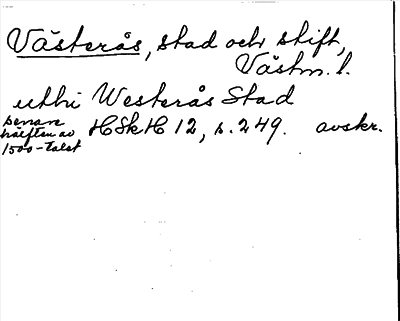 Västerås, stad och stift,
Västm. l.
utthi Westerås Stad
senare
hälften av
1500-talet
HSkH 12, s. 249. avskr.